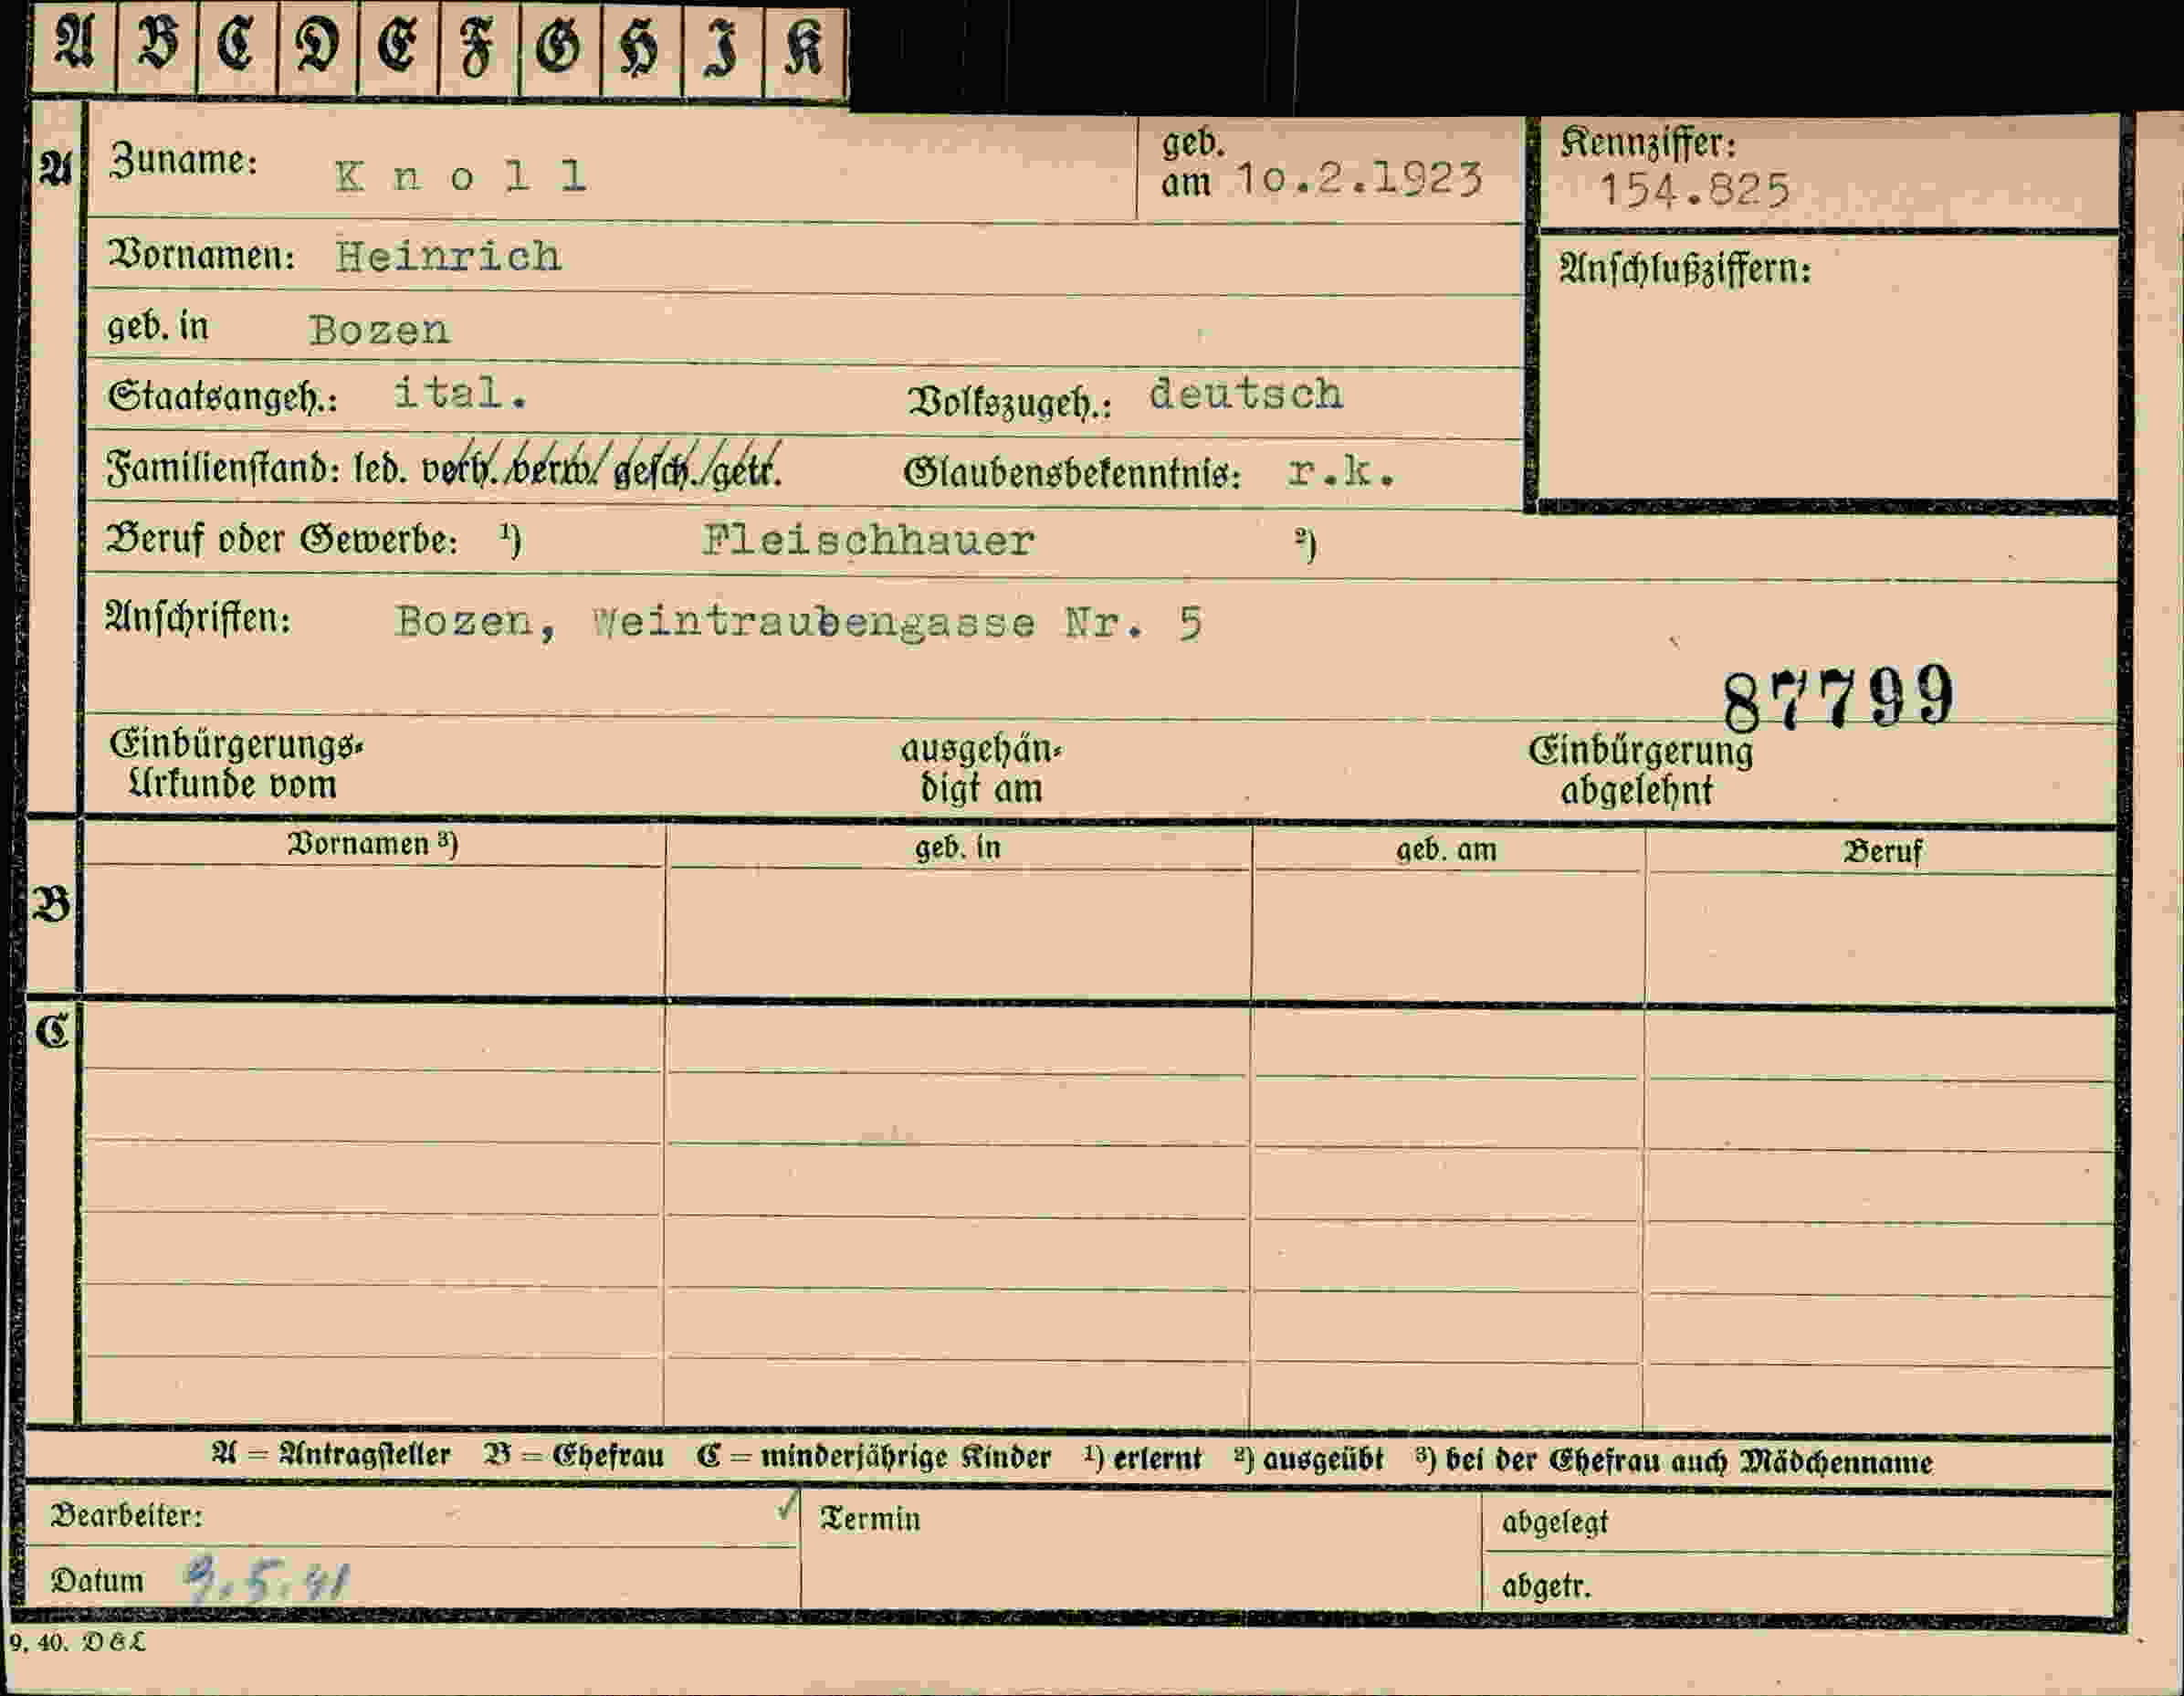 A B C D E F G H I K
A Zuname: Knoll geb. am 10.2.1923 Kennziffer: 154.825
Vornamen: Heinrich Anschlußziffern:
geb. in Bozen
Staatsangeh.: ital. Volkszugeh.: deutsch
Familienstand: led. verh./verw./gesch./getr. Glaubensbekenntnis: r.k.
Beruf oder Gewerbe: ¹) Fleischhauer ²)
Anschriften: Bozen, Weintraubengasse Nr. 5
87799
Einbürgerungs-
Urkunde vom
ausgehän-
digt am
Einbürgerung
abgelehnt
Vornamen ³) geb. in geb. am Beruf
B
C
A = Antragsteller B = Ehefrau C = minderjährige Kinder ¹) erlernt ²) ausgeübt ³) bei der Ehefrau auch Mädchenname
Bearbeiter: Termin abgelegt
Datum 9.5.41 abgetr.
9. 40. D & L